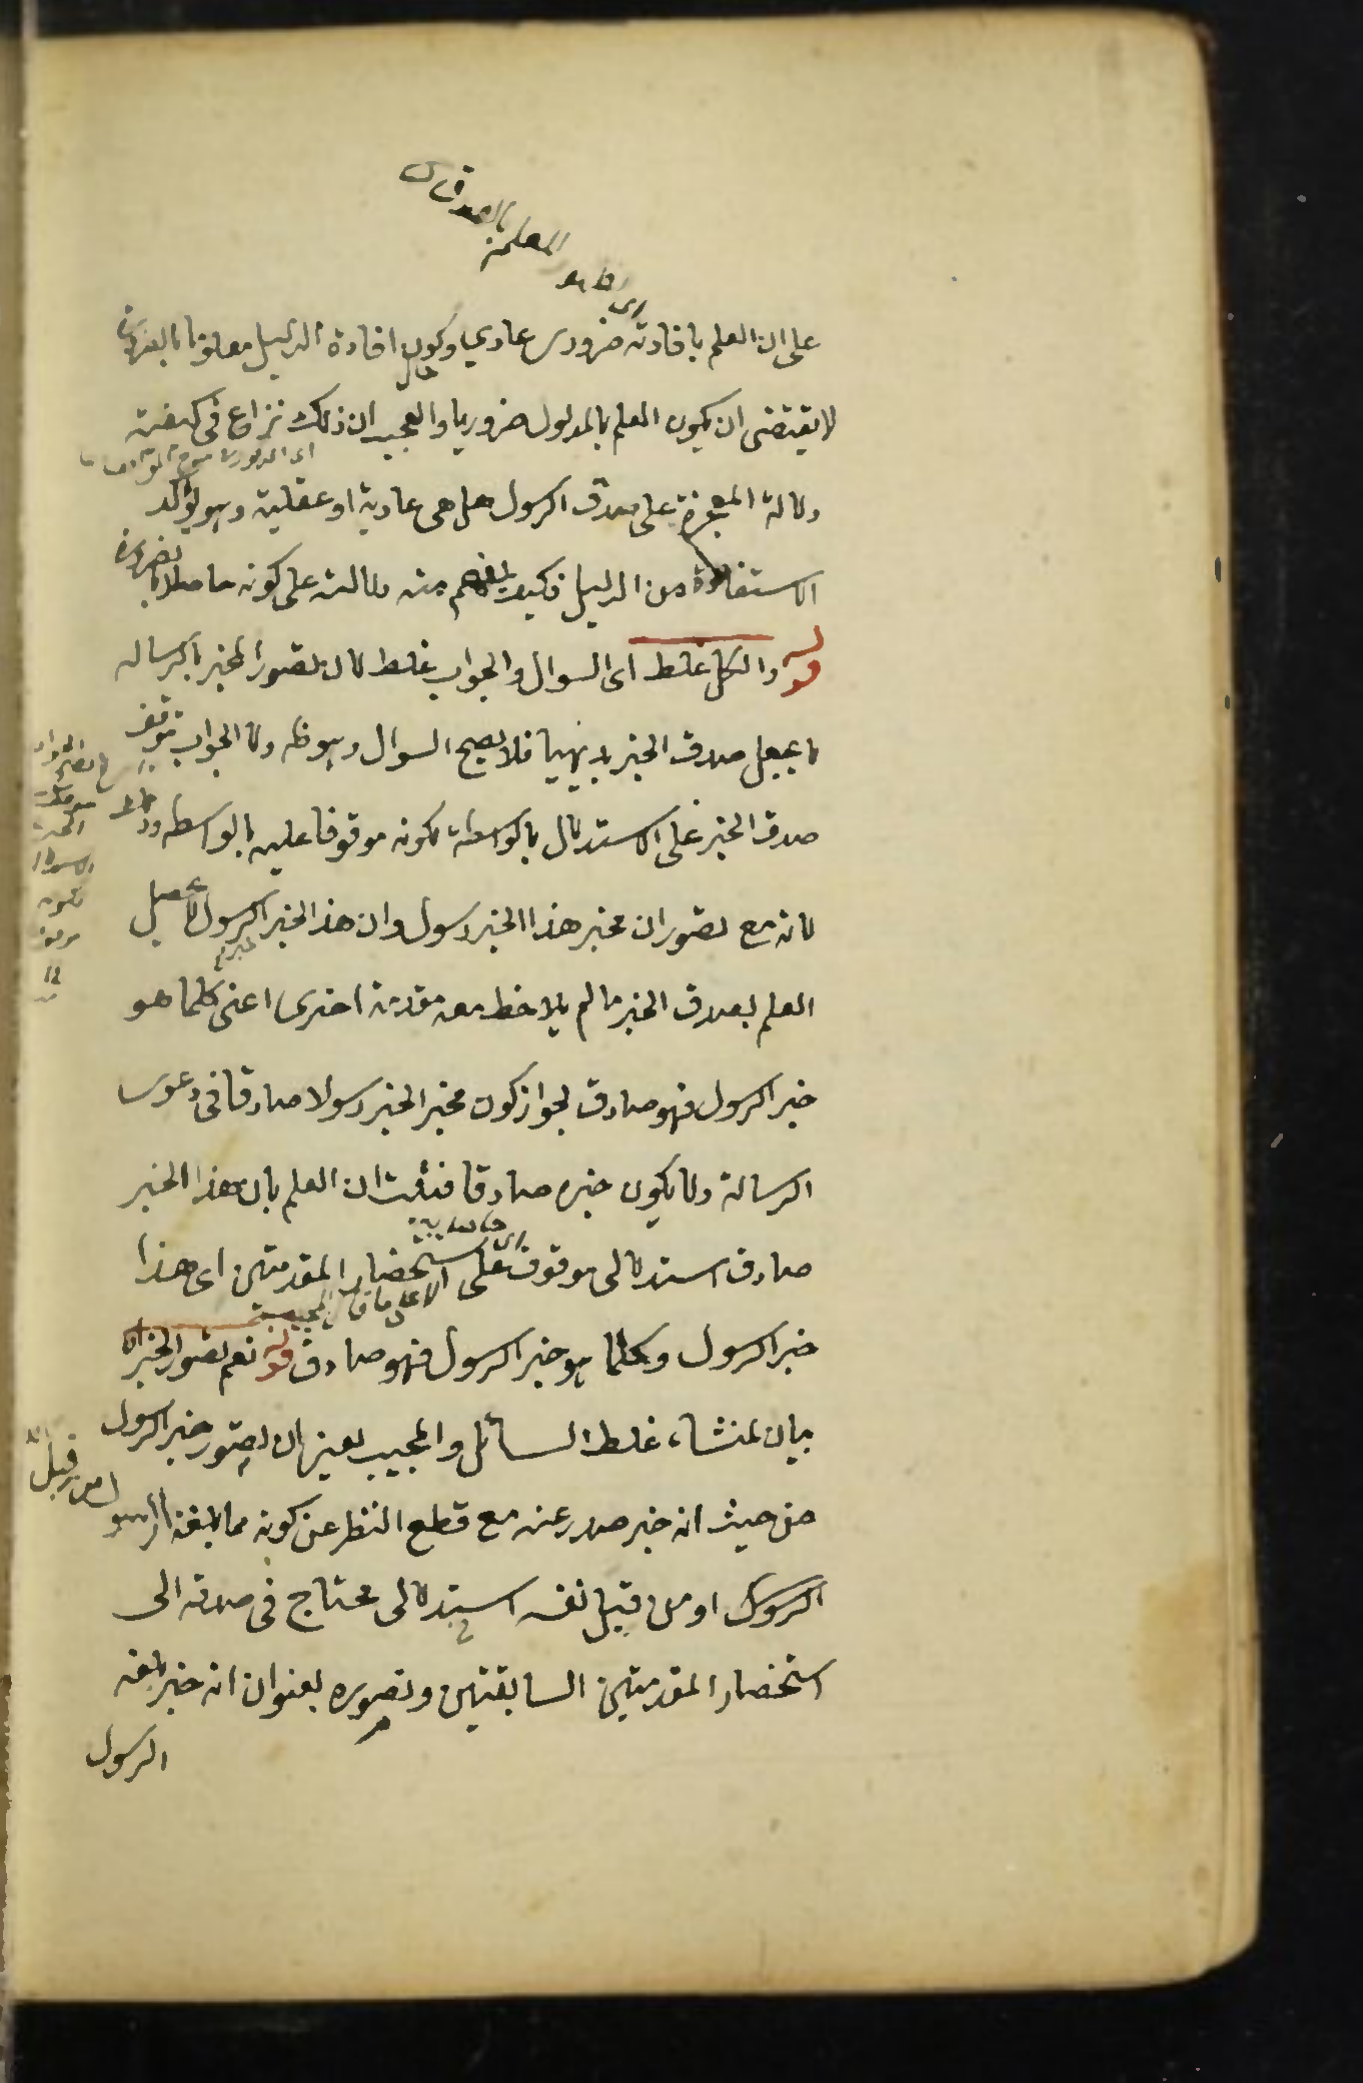 على ان العلم بافادته ضرورى عادي وكون افادة الدليل معلوما بالضرورة
لا يقتضى ان يكون العلم بالمدلول ضروريا والعجب ان ذلك نزاع فى كيفية
دلالة المعجزة على صدق الرسول هل هى عادية او عقلية وهو يؤكد
الاستفادة من الدليل فكيف يفهم منه دلالته على كونه حاصلا بالضرورة
قوله والكل غلط اى السوال والجواب غلط لان تصور المخبر بالرسالة
لا يجعل صدق الخبر بديهيا فلا يصح السوال وهو ظ ولا الجواب بتوقف
صدق الخبر على الاستدلال بالواسطة لكونه موقوفا عليه بالواسطه
لانه مع تصور ان مخبر هذا الخبر رسول وان هذا الخبر خبر الرسول لا يحصل
العلم بصدق الخبر ما لم يلاحظ معه مقدمة اخرى اعنى كلما هو
خبر الرسول فهو صادق لجواز كون مخبر الخبر رسولا صادقا فى دعوى
الرسالة ولا يكون خبره صادقا فثبت ان العلم بان هذا الخبر
صادق استدلالى موقوف على استحضار المقدمتين اى هذا
خبر الرسول وكلما هو خبر الرسول فهو صادق قوله نعم تصور الخبر اه
بيان لمنشاء غلط السائل والمجيب يعنى ان تصور خبر الرسول
من حيث انه خبر صدر عنه مع قطع النظر عن كونه مما بلغه الرسول من قبل الله
الرسول او من قبل نفسه استدلالى يحتاج فى صدقه الى
استحضار المقدمتين السابقتين وتصوره بعنوان انه خبر بلغه
الرسول